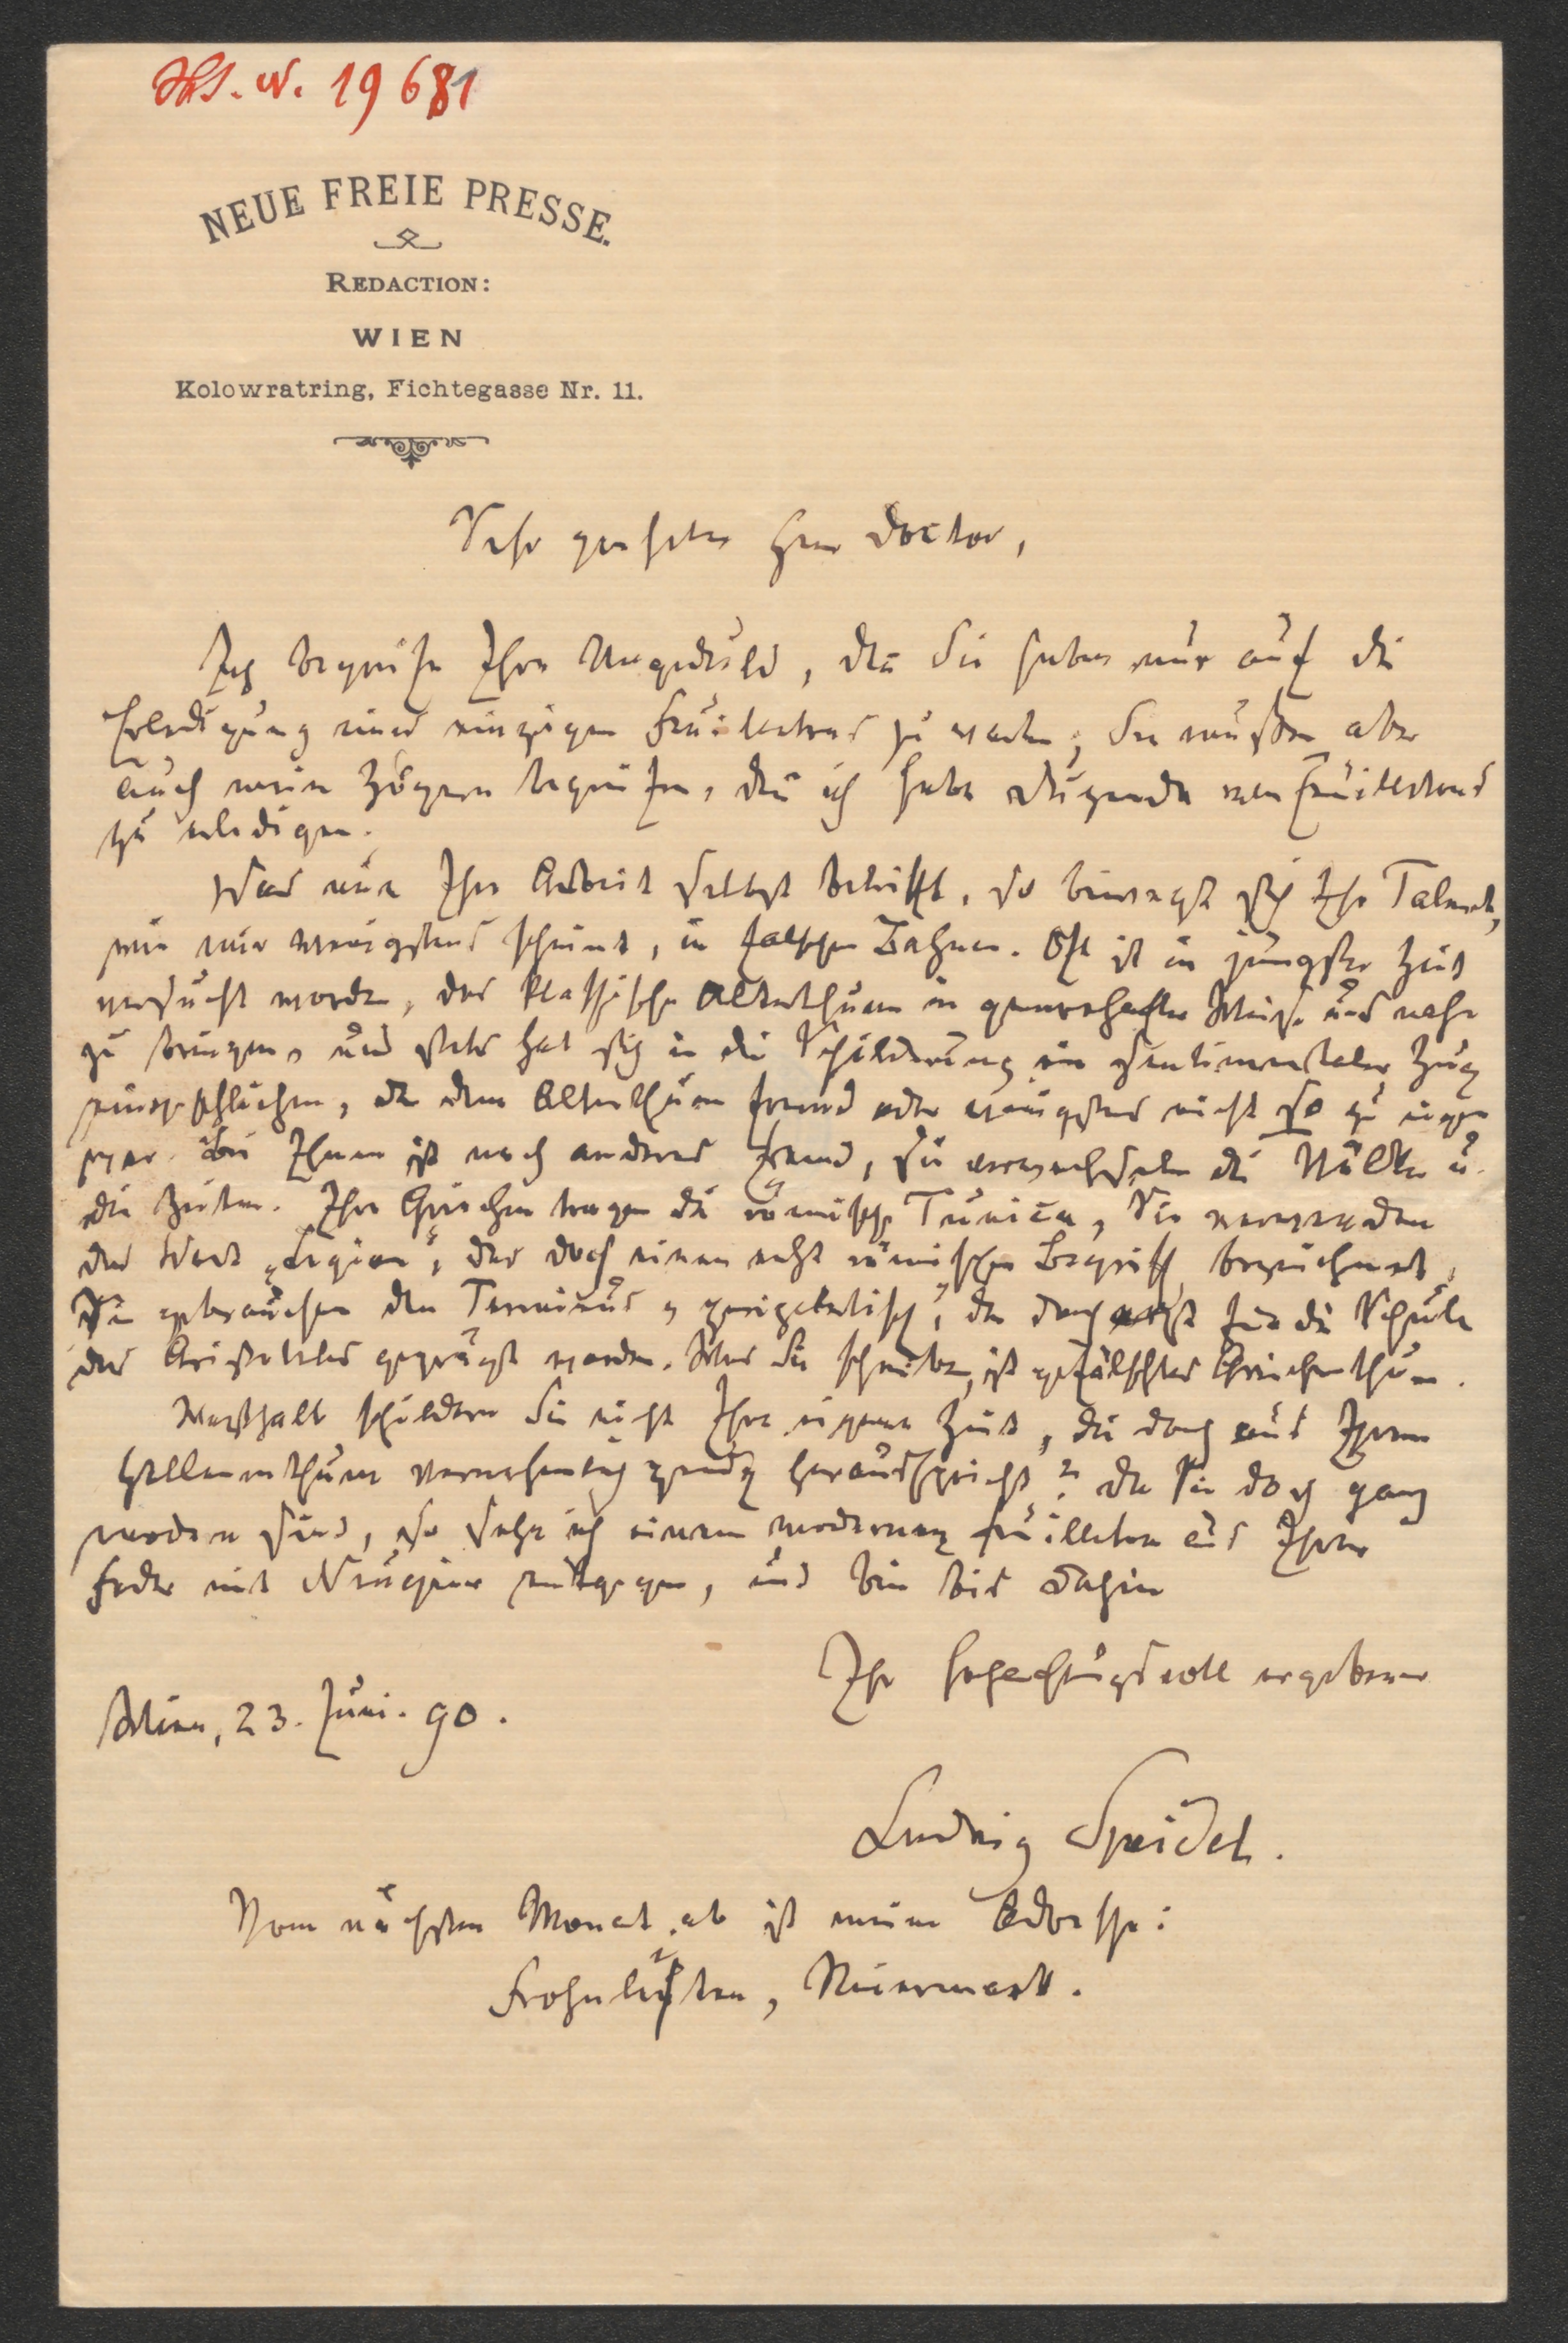 Hs. N. 19681
NEUE FREIE PRESSE.
REDACTION:
WIEN
Kolowratring, Fichtegasse Nr. 11.
Sehr geehrter Herr Doctor,
Ich begreife Ihre Ungeduld, denn Sie haben nur auf die
Erledigung eines einzigen Feuilletons zu warten; Sie müssen aber
auch mein Zögern begreifen, denn ich habe Dutzende von Feuilletons
zu erledigen.
Was nun Ihre Arbeit selbst betrifft, so bewegt sich Ihr Talent,
wie mir wenigstens scheint, in falschen Bahnen. Oft ist in jüngster Zeit
versucht worden, das klassische Alterthum in genrehafter Weise uns nahe
zu bringen, und stets hat sich in die Schilderung ein sentimentaler Zug
eingeschlichen, der dem Alterthum fremd oder wenigstens nicht so zu eigen
war. Bei Ihnen ist noch anderes fremd, Sie verwechseln die Völker u.
die Zeiten. Ihre Griechen tragen die römische Tunica, Sie verwenden
das Wort „Legion“, das doch einen echt römischen Begriff bezeichnet,
Sie gebrauchen den Terminus „peripatetisch“, der doch erst für die Schule
des Aristoteles geprägt worden. Was Sie schreiben, ist gefälschtes Griechenthum.
Weßhalb schildern Sie nicht Ihre eigene Zeit, die doch aus Ihrem
Hellenenthum vernehmlich genug herausspricht? Da Sie doch ganz
modern sind, so sehe ich einem modernen Feuilleton aus Ihrer
Feder mit Neugier entgegen, und bin bis dahin
Ihr hochachtungsvoll ergebener
Wien, 23. Juni. 90.
Ludwig Speidel.
Vom nächsten Monat ab ist meine Adresse:
Frohnleiten, Steiermark.